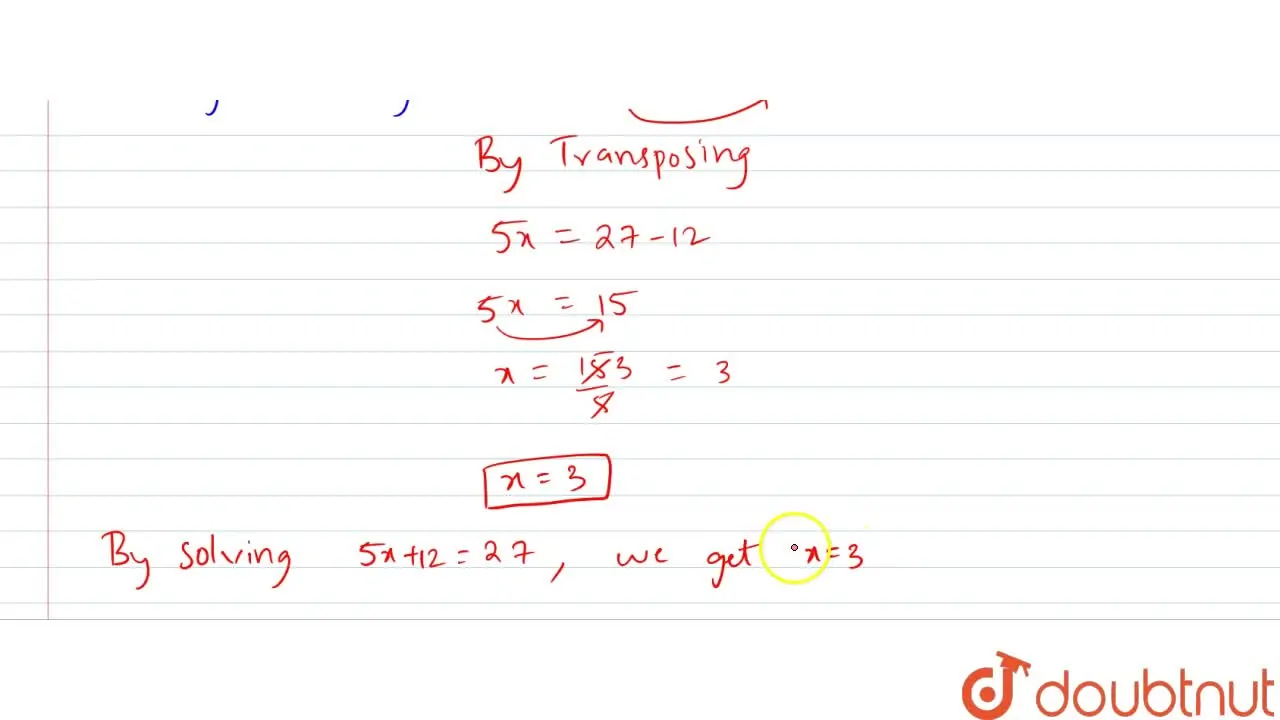 By Transposing
5x = 27 - 12
5x = 15
x = 15/5 3 = 3
x = 3
By solving 5x + 12 = 27, we get x = 3
doubtnut